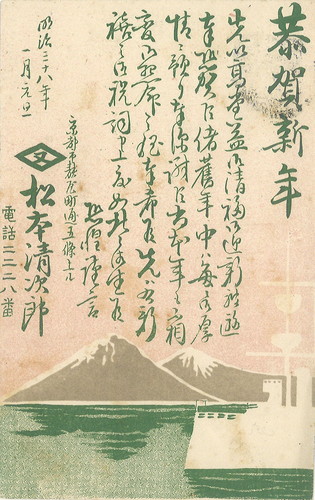 恭賀新年
先以高堂益御清福御迎新被遊
奉賀候舊年中ハ毎々御厚
情を蒙り奉深謝候尚本年も不相
変御之程奉希候先ハ右新
禧之御祝詞申上度如此ニ御座候
恐惶謹言
明治三十八年
一月元旦
京都市麩屋町通五條上ル
又
松本清次郎
電話二二二八番